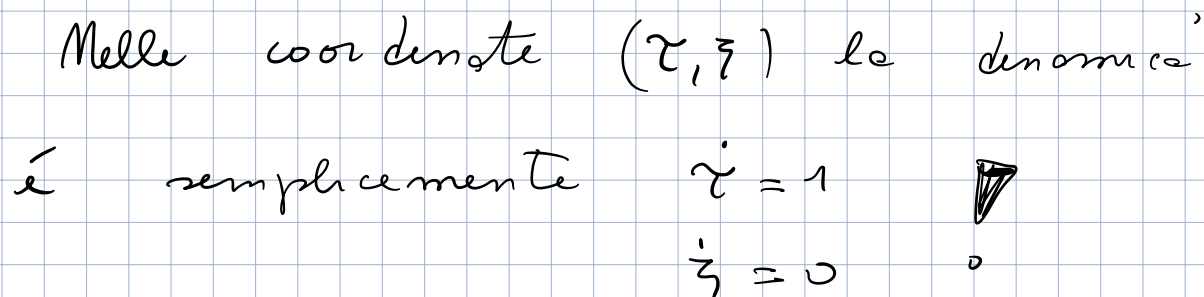 Nelle coordinate (τ, ξ) la dinamica
é semplicemente τ̇ = 1 !
ξ̇ = 0